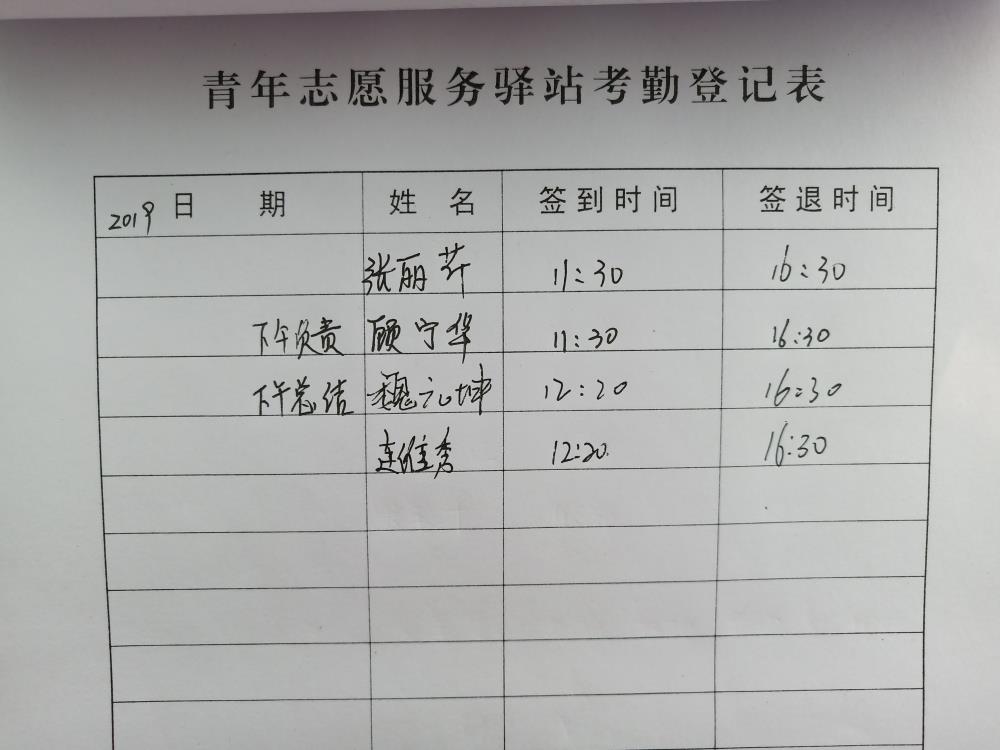 青年志愿服务驿站考勤登记表
2019 日 期 姓 名 签到时间 签退时间
张丽芹 11:30 16:30
下午负责 顾宁华 11:30 16:30
下午总结 魏元坤 12:20 16:30
连维秀 12:20 16:30